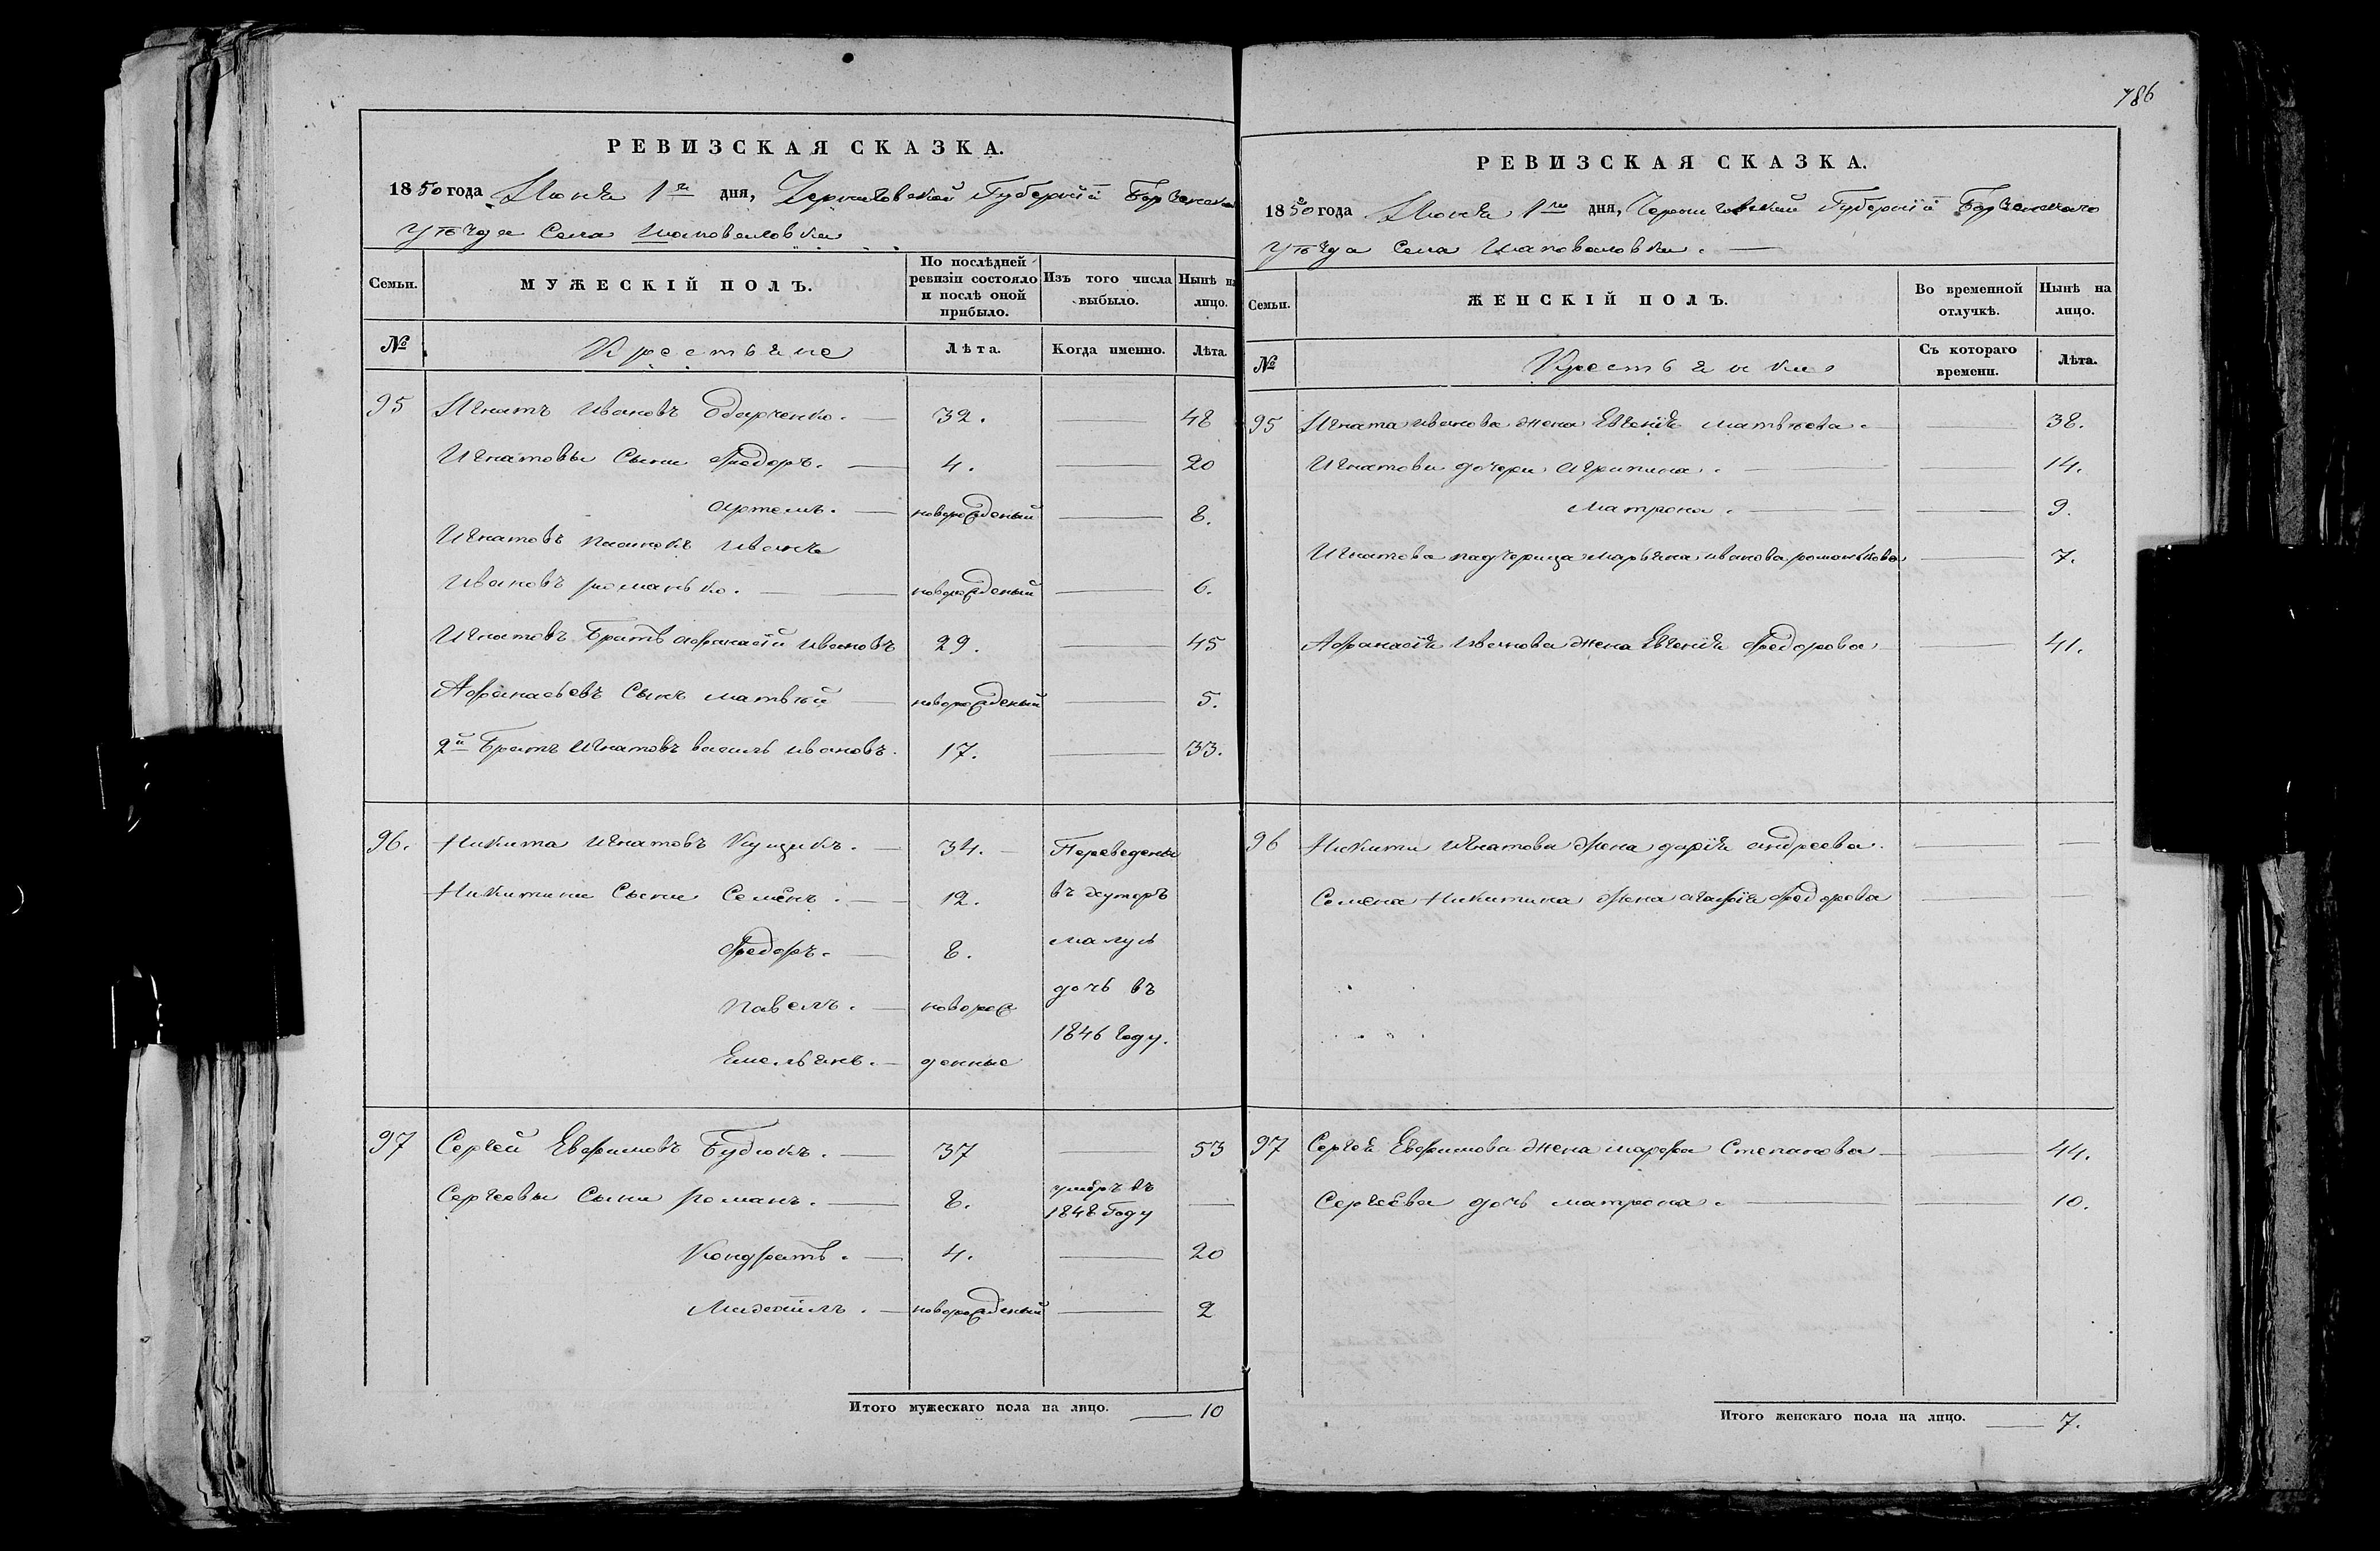 РЕВИЗСКАЯ СКАЗКА.
1850 года Июня 1го дня, Черниговской Губернiи Борзенска
уѣзда Села Шаповаловки
Семьи. МУЖЕСКIЙ ПОЛЪ. По послѣдней ревизiи состояло и послѣ оной прибыло. Изъ того числа выбыло. Нынѣ на лицо.
№ Крестьяне Лѣта. Когда именно. Лѣта.
95 Игнатъ Ивановъ Одарченко. 32. 48
Игнатовы Сыни Федоръ. 4. 20
Артемъ. новорожденый 8.
Игнатовъ пасинокъ Иванъ
Ивановъ романько. новорожденый 6.
Игнатовъ Братъ Афанасiй Ивановъ 29. 45
Афанасьевъ Сынъ матвѣй новорожденый 5.
2й Братъ Игнатовъ василь ивановъ. 17. 33.
96. Никита Игнатовъ Кущикъ. 34. Переведены
Никитини Сыни Семенъ. 12. въ хуторъ
Федоръ. 8. малуй
Павелъ. новорож дочь въ
Емельянъ. денные 1846 Году.
97 Сергей Евфимовъ Будюкъ. 37 53
Сергеевы Сыни романъ. 8. умеръ въ 1848 Году
Кондратъ. 4. 20
Михаилъ. новорожденый 2
Итого мужескаго пола на лицо. 10
786
РЕВИЗСКАЯ СКАЗКА.
1850 года Июня 1го дня, Черниговской Губернiи Борзенскаго
уѣзда Села Шаповаловки.
Семьи. ЖЕНСКIЙ ПОЛЪ. Во временной отлучкѣ. Нынѣ на лицо.
№ Крестьянки Съ котораго времени. Лѣта.
95 Игната иванова жена Евгенiя матвѣева. 38.
Игнатови дочери Агрипина. 14.
Матрона. 9.
Игнатова падчерица марьяна иванова романькова 7.
Афанасiя Иванова жена Евгенiя Федорова 41.
96 Никити Игнатова жена дарiя андреева.
Семена Никитина жена агафiя Федорова
97 Сергея Евфимова жена марфа Степанова 44.
Сергеева дочь матрона. 10.
Итого женскаго пола на лицо. 7.